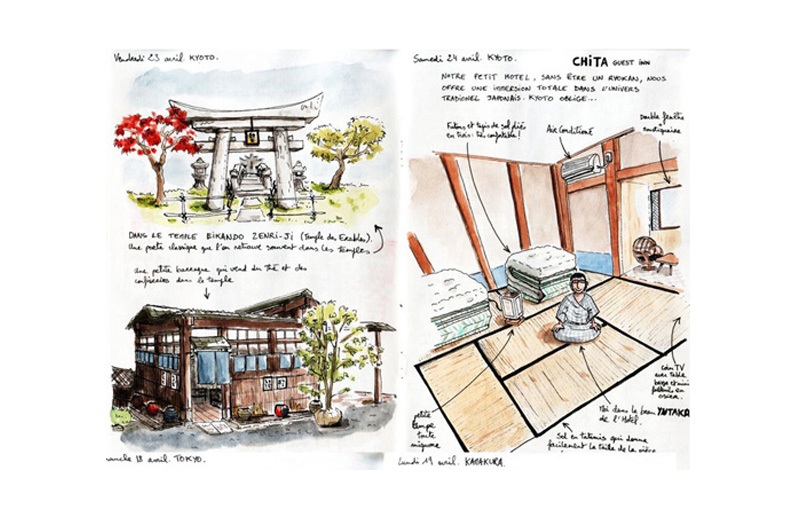 Vendredi 23 avril. KYOTO.
DANS LE TEMPLE EIKANDO ZENRI-JI (Temple des Erables).
Une porte classique que l'on retrouve souvent dans les temples
Une petite barraque qui vend du THÉ et des
confiseries dans le temple
manche 18 avril. TOKYO.
Samedi 24 avril. KYOTO.
CHiTA GUEST INN
NOTRE PETIT HOTEL, SANS ÊTRE UN RYOKAN, NOUS
OFFRE UNE IMMERSION TOTALE DANS L'UNIVERS
TRADIONEL JAPONAIS. KYOTO OBLIGE...
Futons et tapis de sol pliés
en trois. très confortable!
Air Conditioné
Double fenêtre
+
moustiquaire
coin TV
avec table
basse et mini
fauteuils en
osier.
petite
lampe
toute
mignonne
Moi dans le beau YUTAKA
de l'Hotel.
Sol en tatamis qui donne
facilement la taille de la pièce
Lundi 19 avril. KAMAKURA.